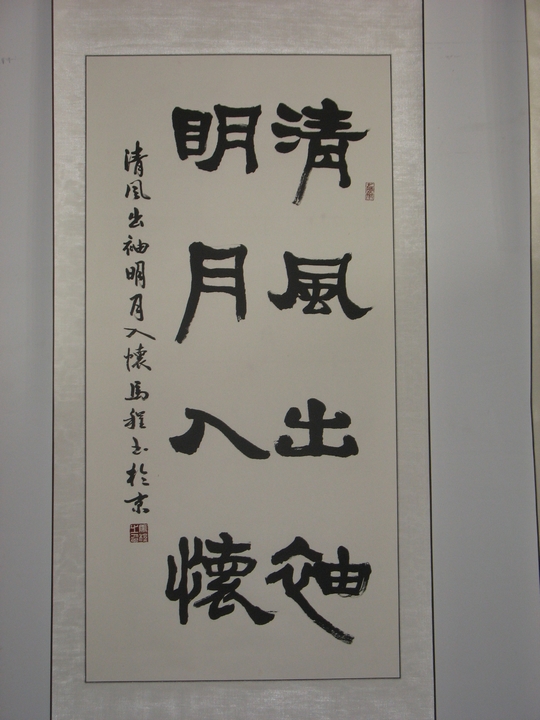 清風出袖
明月入懷
清风出袖明月入懷馬程书於京